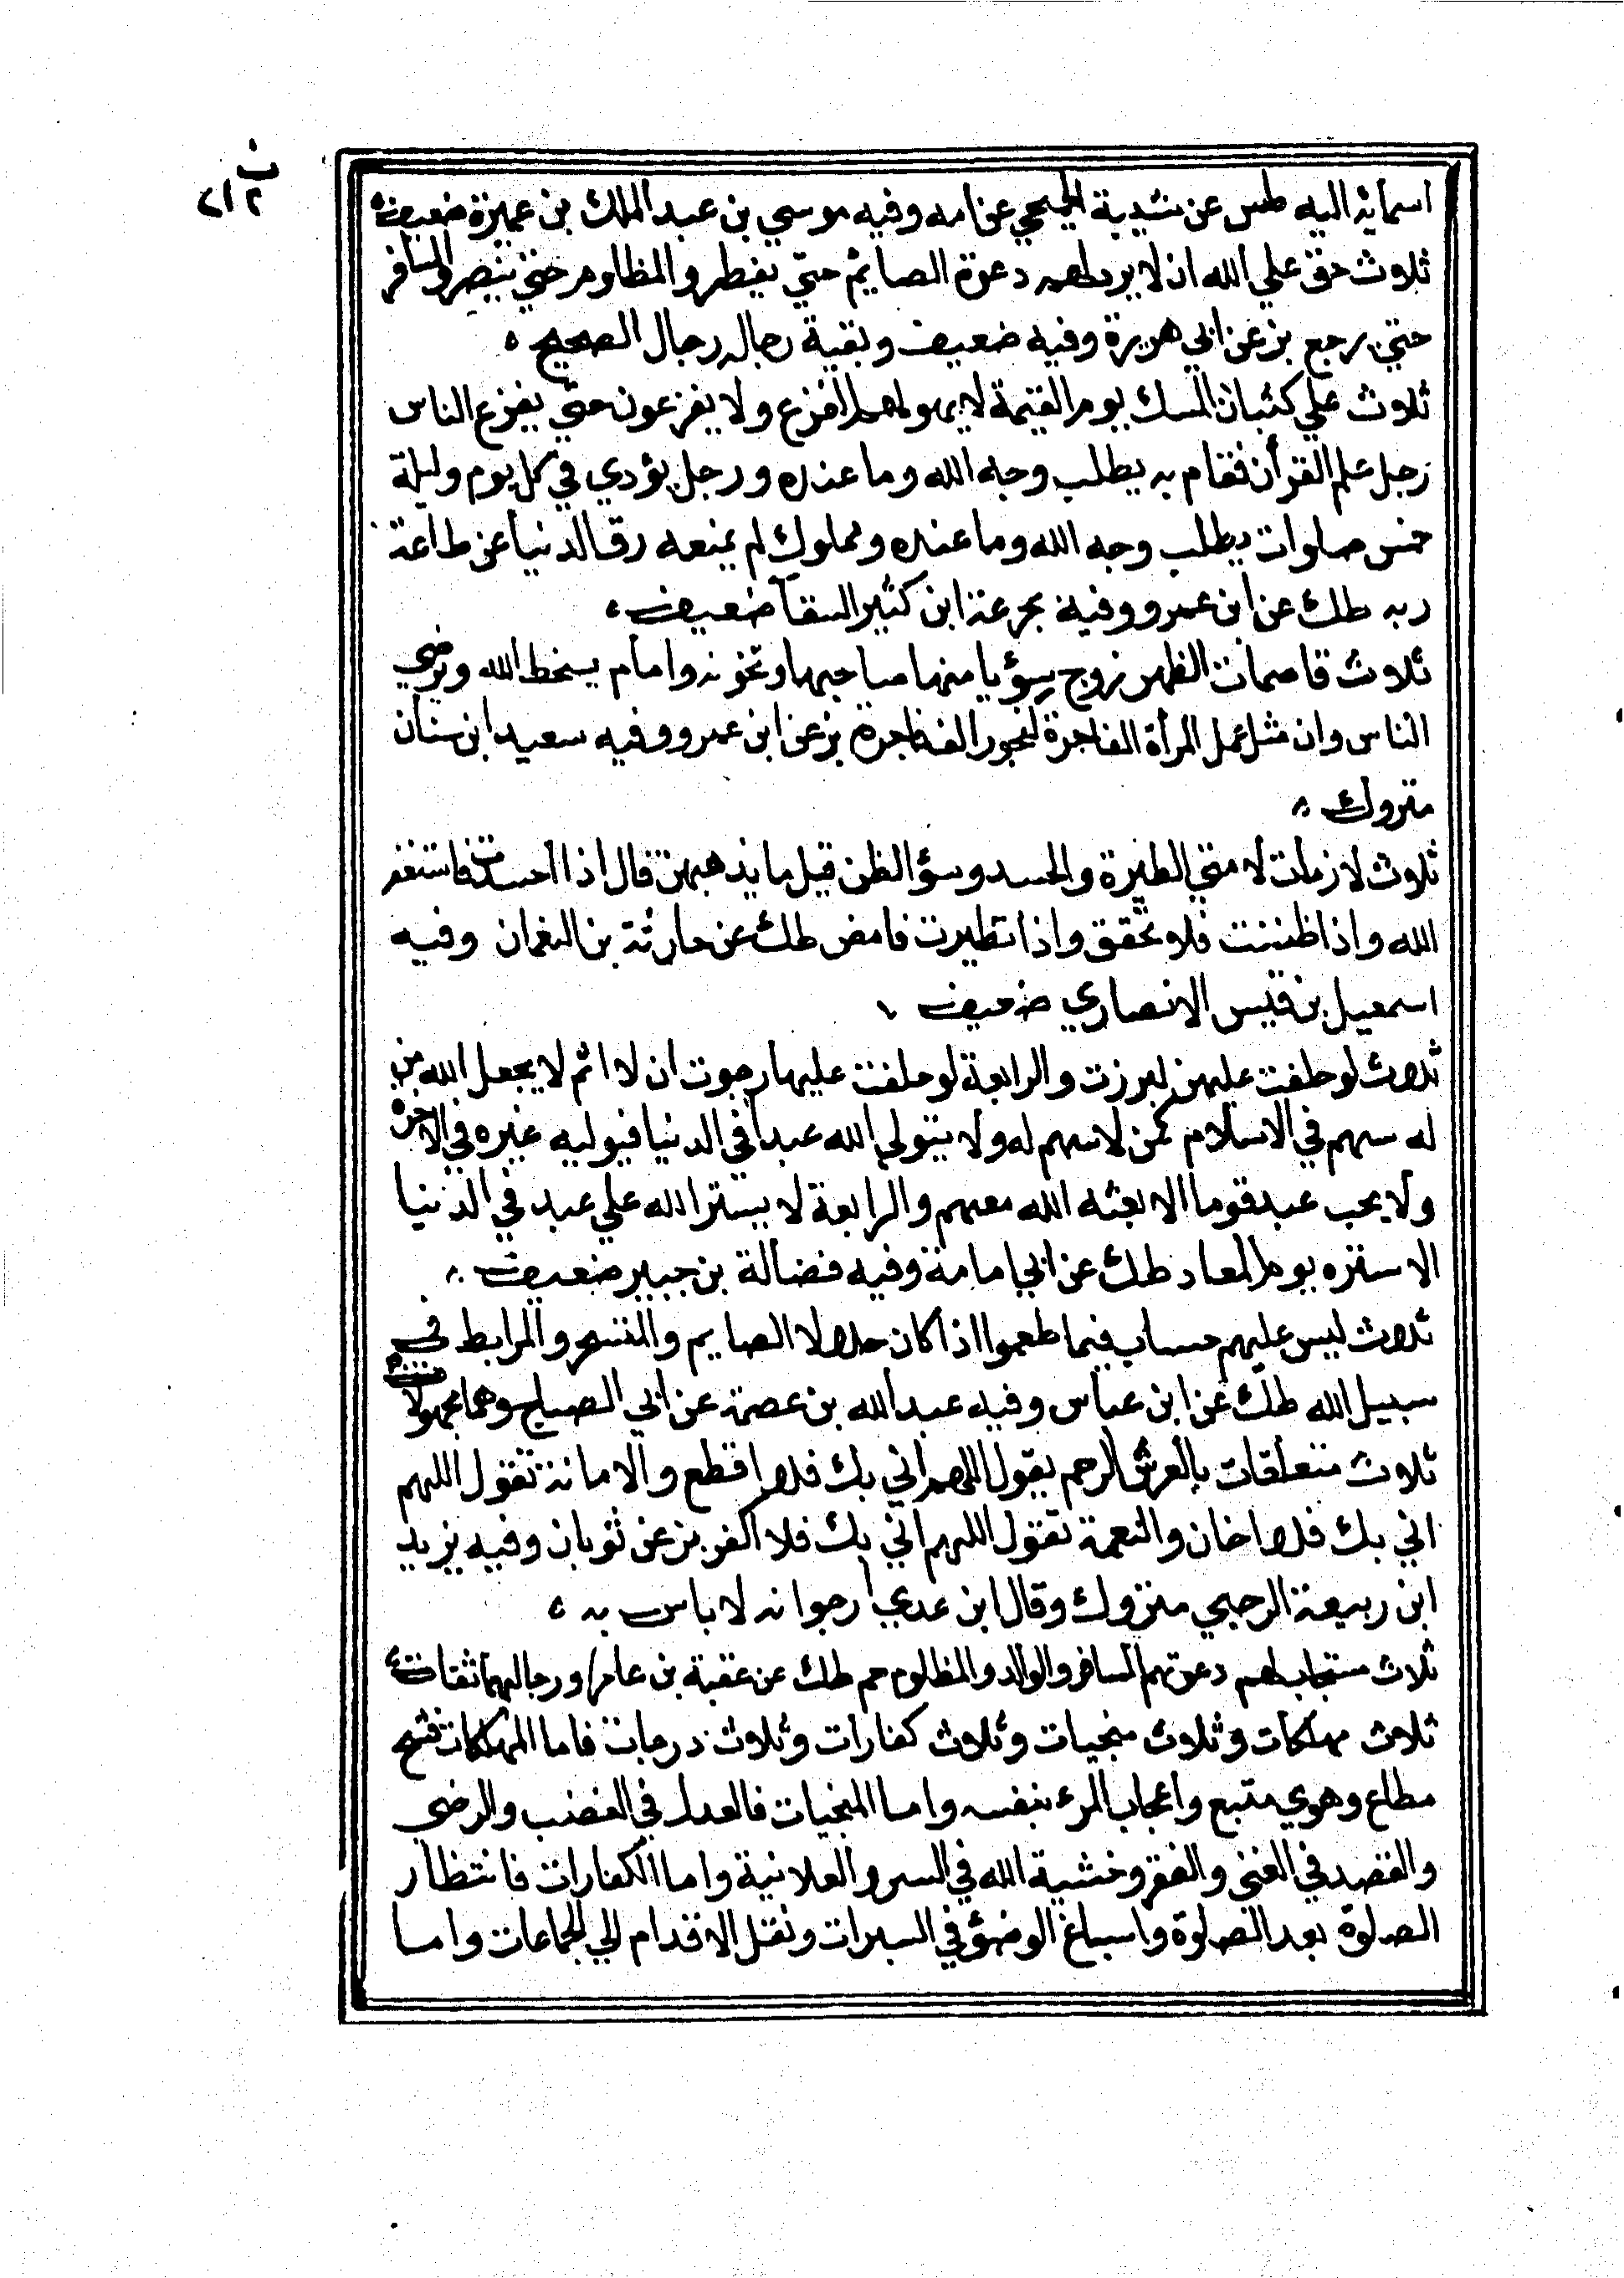 اسمائه اليه طس عن شيبة الحجبي عن امه وفيه موسي بن عبد الملك بن عميرة ضعيف
ثلوث حق علي الله ان لا يرد لهم دعوة الصايم حتي يفطر والمظلوم حتي ينتصر والمسافر
حتي يرجع بز عن ابي هريرة وفيه ضعيف وبقية رجاله رجال الصحيح
ثلوث علي كثبان المسك يوم القيمة لا يهولهم الفزع ولا يفزعون حتي يفزع الناس
رجل علم القرأن فقام به يطلب وجه الله وما عنده ورجل يؤدي في كل يوم وليلة
خمس صلوات يطلب وجه الله وما عنده ومملوك لم يمنعه رق الدنيا عن طاعة
ربه طك عن ابن عمرو وفيه بحر عن ابن كثير السقا ضعيف
ثلوث قاصمات الظهر زوج سؤ يامنها صاحبها وتخونه وامام يسخط الله ويرضي
الناس وان مثل عمل المرأة الفاجرة كفجور الف فاجرة بز عن ابن عمرو وفيه سعيد ابن سنان
متروك
ثلوث لازمات لامتي الطيرة والحسد وسؤ الظن قيل ما يذهبهن قال اذا احسدت فاستغفر
الله واذا ظننت فلا تحقق واذا تطيرت فامض طك عن حارثة بن النعمان وفيه
اسمعيل بن قيس الانصاري ضعيف
ثلوث لو حلفت عليهن لبررت والرابعة لو حلفت عليها رجوت ان لا اثم لا يجعل الله من
له سهم في الاسلام كمن لا سهم له ولا يتولي الله عبدا في الدنيا فيوليه غيره في الاخرة
ولا يحب عبد قوما الا بعثه الله معهم والرابعة لا يستر الله علي عبد في الدنيا
الا ستره يوم المعاد طك عن ابي امامة وفيه فضالة بن جبير ضعيف
ثلوث ليس عليهم حساب فيما طعموا اذا كان حلالا الصايم والمتسحر والمرابط في
سبيل الله طك عن ابن عباس وفيه عبد الله بن عصمة عن ابي الصباح وهما مجهولان
ثلوث متعلقات بالعرش الرحم يقول اللهم اني بك فلا اقطع والامانة تقول اللهم
اني بك فلا اخان والنعمة تقول اللهم اني بك فلا اكفر بز عن ثوبان وفيه يزيد
ابن ربيعة الرحبي متروك وقال ابن عدي ارجوا نه لا باس به
ثلاث مستجاب لهم دعوتهم المسافر والوالد والمظلوم حم طك عن عقبة بن عامر ورجالهما ثقات
ثلوث مهلكات وثلوث منجيات وثلوث كفارات وثلوث درجات فاما المهلكات فشح
مطاع وهوي متبع واعجاب المرء بنفسه واما المنجيات فالعدل في الغضب والرضي
والقصد في الغني والفقر وخشية الله في السر والعلانية واما الكفارات فانتظار
الصلوة بعد الصلوة واسباغ الوضؤ في السبرات ونقل الاقدام الي الجماعات واما